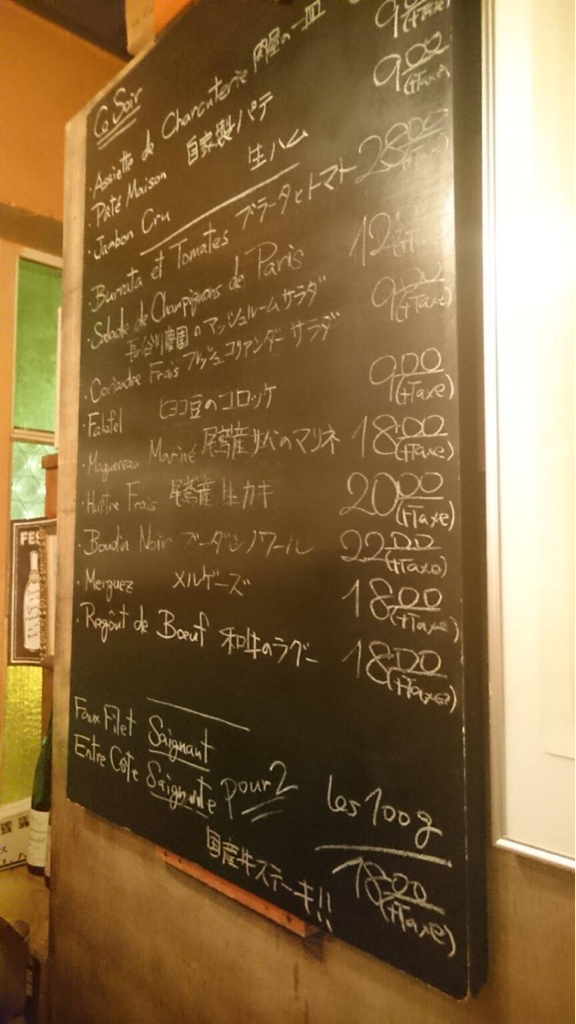 Ce Soir
・Assiette de Charcuterie 肉屋の一皿 900 (+Taxe)
・Pâté Maison 自家製パテ 900 (+Taxe)
・Jambon Cru 生ハム
・Burrata et Tomates ブラータとトマト 2800 (+Taxe)
・Salade de Champignons de Paris 12 (+Taxe)
長谷川農園のマッシュルームサラダ
・Coriandre Frais フレッシュコリアンダーサラダ 900 (+Taxe)
・Falafel ヒヨコ豆のコロッケ 900 (+Taxe)
・Maquereau Mariné 尾鷲産サバのマリネ 1800 (+Taxe)
・Huître Frais 尾鷲産生カキ 2000 (+Taxe)
・Boudin Noir ブーダンノワール 2200 (+Taxe)
・Merguez メルゲーズ 1800 (+Taxe)
・Ragoût de Bœuf 和牛のラグー 1800 (+Taxe)
Faux Filet Saignant
Entre Côte Saignante pour 2 les 100g
国産牛ステーキ!! 1800 (+Taxe)
FES